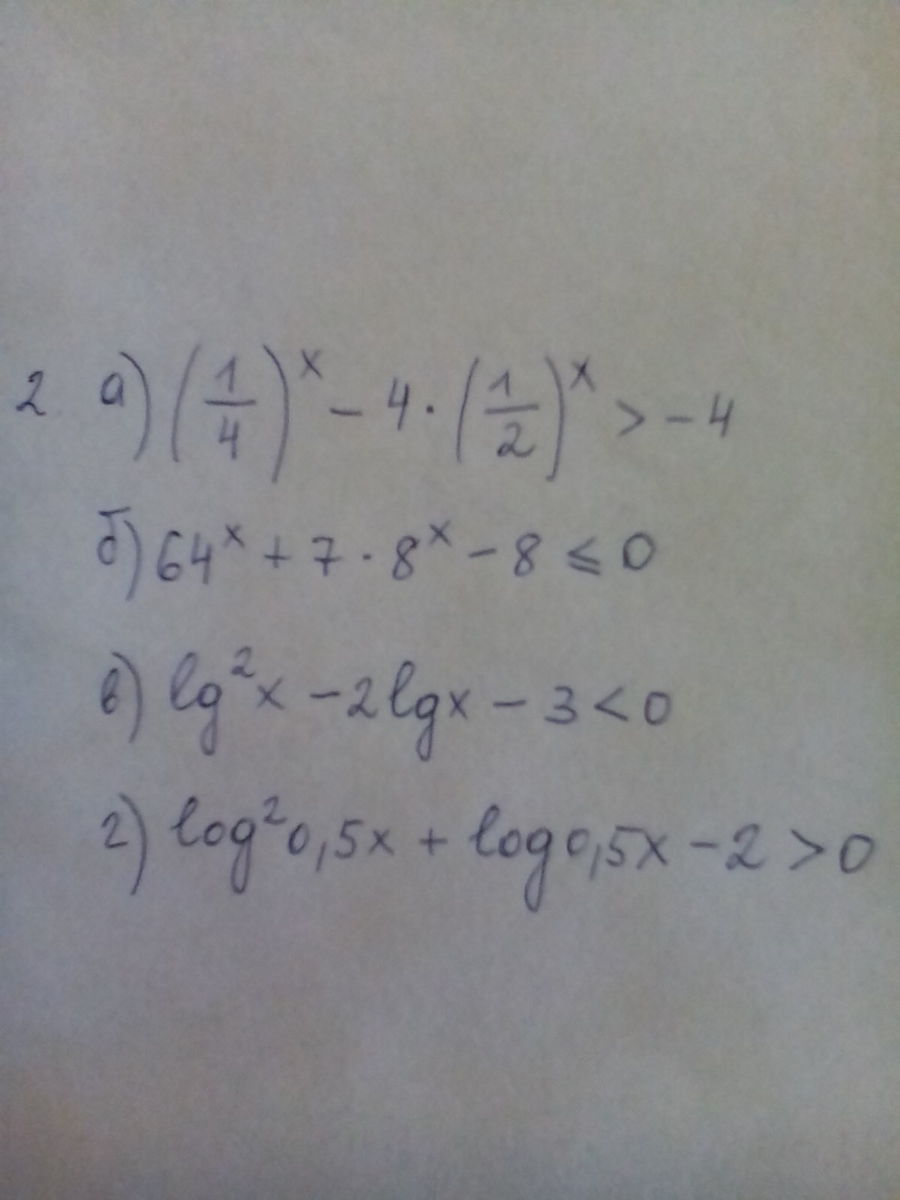 2 а) (1/4)^x - 4 · (1/2)^x > -4
б) 64^x + 7 · 8^x - 8 ⩽ 0
в) lg²x - 2lgx - 3 < 0
г) log²0,5x + log0,5x - 2 > 0